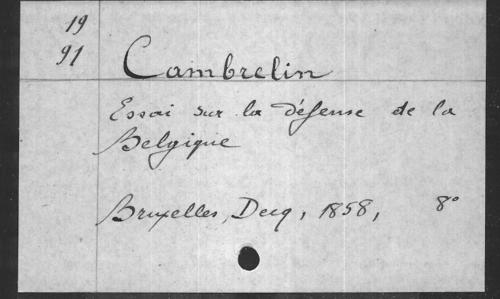 19
91
Cambrelin
Essai sur la défense de la
Belgique
Bruxelles, Decq, 1858, 8°